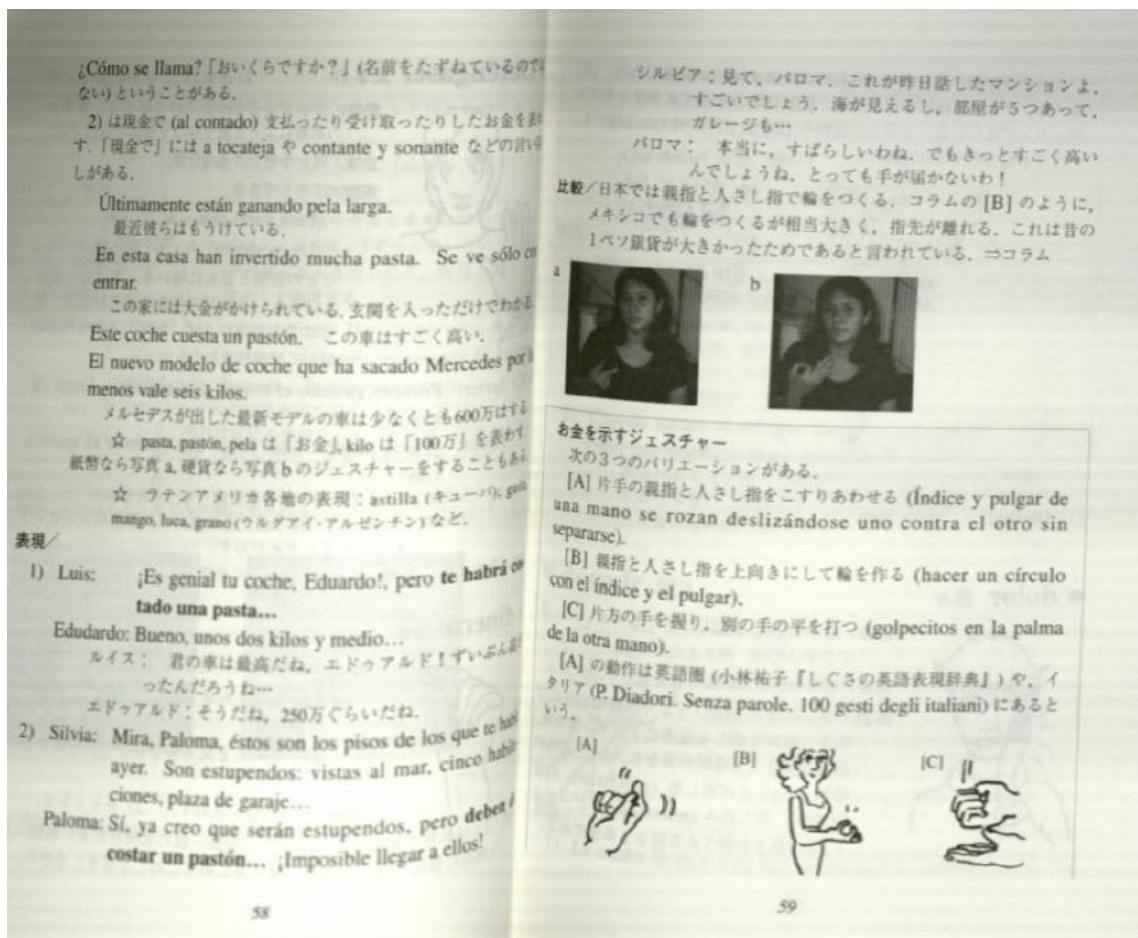 ¿Cómo se llama?「おいくらですか?」(名前をたずねているので
ない)ということがある.
2) は現金で (al contado) 支払ったり受け取ったりしたお金を
す.「現金で」には a tocateja や contante y sonante などの言い
しがある.
Últimamente están ganando pela larga.
最近彼らはもうけている.
En esta casa han invertido mucha pasta. Se ve sólo
entrar.
この家には大金がかけられている. 玄関を入っただけでわかる
Este coche cuesta un pastón. この車はすごく高い.
El nuevo modelo de coche que ha sacado Mercedes por
menos vale seis kilos.
メルセデスが出した最新モデルの車は少なくとも600万はする
☆ pasta, pastón, pela は「お金」, kilo は「100万」を表わす
紙幣なら写真 a, 硬貨なら写真 b のジェスチャーをすることもある
☆ ラテンアメリカ各地の表現:astilla (キューバ);
mango, luca, grano (ウルグアイ・アルゼンチン) など.
表現/
1) Luis: ¡Es genial tu coche, Eduardo!, pero te habrá
tado una pasta...
Edudardo: Bueno, unos dos kilos y medio...
ルイス: 君の車は最高だね, エドゥアルド!ずいぶん
ったんだろうね…
エドゥアルド:そうだね, 250万ぐらいだね.
2) Silvia: Mira, Paloma, éstos son los pisos de los que te
ayer. Son estupendos: vistas al mar, cinco
ciones, plaza de garaje...
Paloma: Sí, ya creo que serán estupendos, pero deben
costar un pastón... ¡Imposible llegar a ellos!
58
シルビア:見て, パロマ, これが昨日話したマンションよ,
すごいでしょう, 海が見えるし, 部屋が5つあって,
ガレージも…
パロマ: 本当に, すばらしいわね. でもきっとすごく高い
んでしょうね, とっても手が届かないわ!
比較/日本では親指と人さし指で輪をつくる. コラムの [B] のように,
メキシコでも輪をつくるが相当大きく, 指先が離れる. これは昔の
1ペソ銀貨が大きかったためであると言われている. ⇒コラム
a b
お金を示すジェスチャー
次の3つのバリエーションがある.
[A] 片手の親指と人さし指をこすりあわせる (Índice y pulgar de
una mano se rozan deslizándose uno contra el otro sin
separarse).
[B] 親指と人さし指を上向きにして輪を作る (hacer un círculo
con el índice y el pulgar).
[C] 片方の手を握り, 別の手の平を打つ (golpecitos en la palma
de la otra mano).
[A] の動作は英語圏 (小林祐子『しぐさの英語表現辞典』) や, イ
タリア (P. Diadori. Senza parole. 100 gesti degli italiani) にあると
いう.
[A] [B] [C]
59